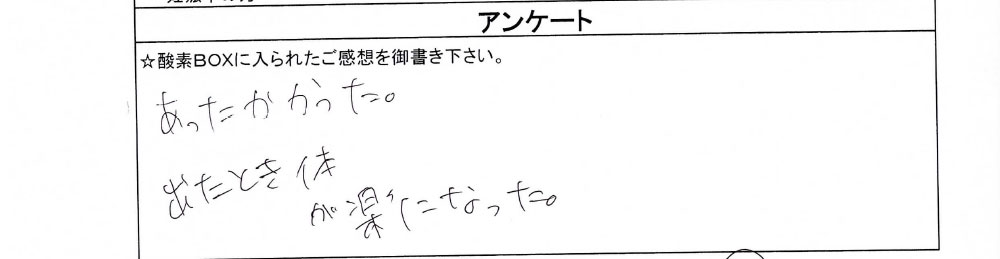 アンケート
☆酸素BOXに入られたご感想を御書き下さい。
あったかかった。
出たとき体
が楽になった。